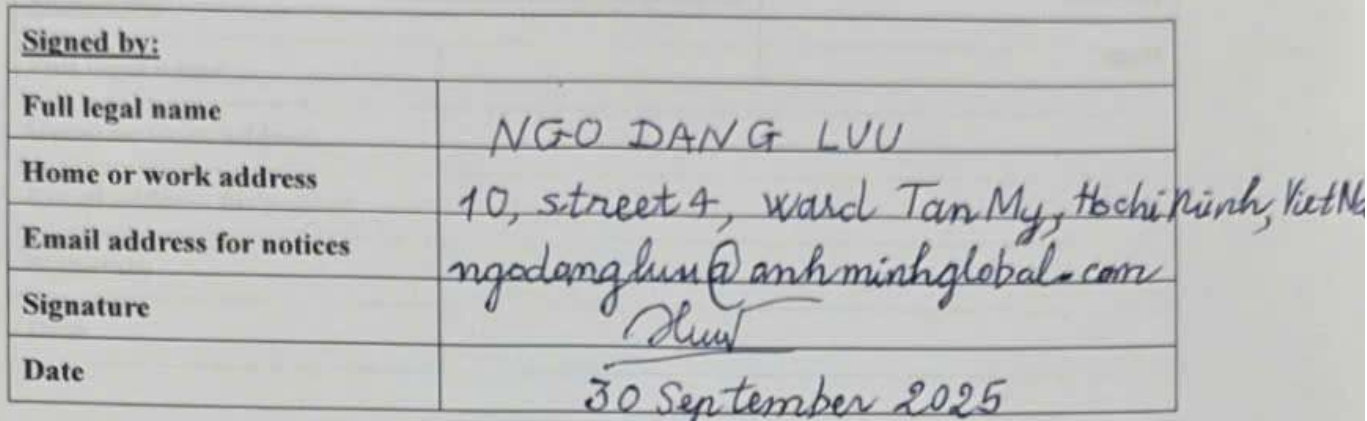 Signed by:
Full legal name NGO DANG LUU
Home or work address 10, street 4, ward Tan My, Hochiminh, VietNa
Email address for notices ngodangluu@anhminhglobal.com
Signature
Date 30 September 2025